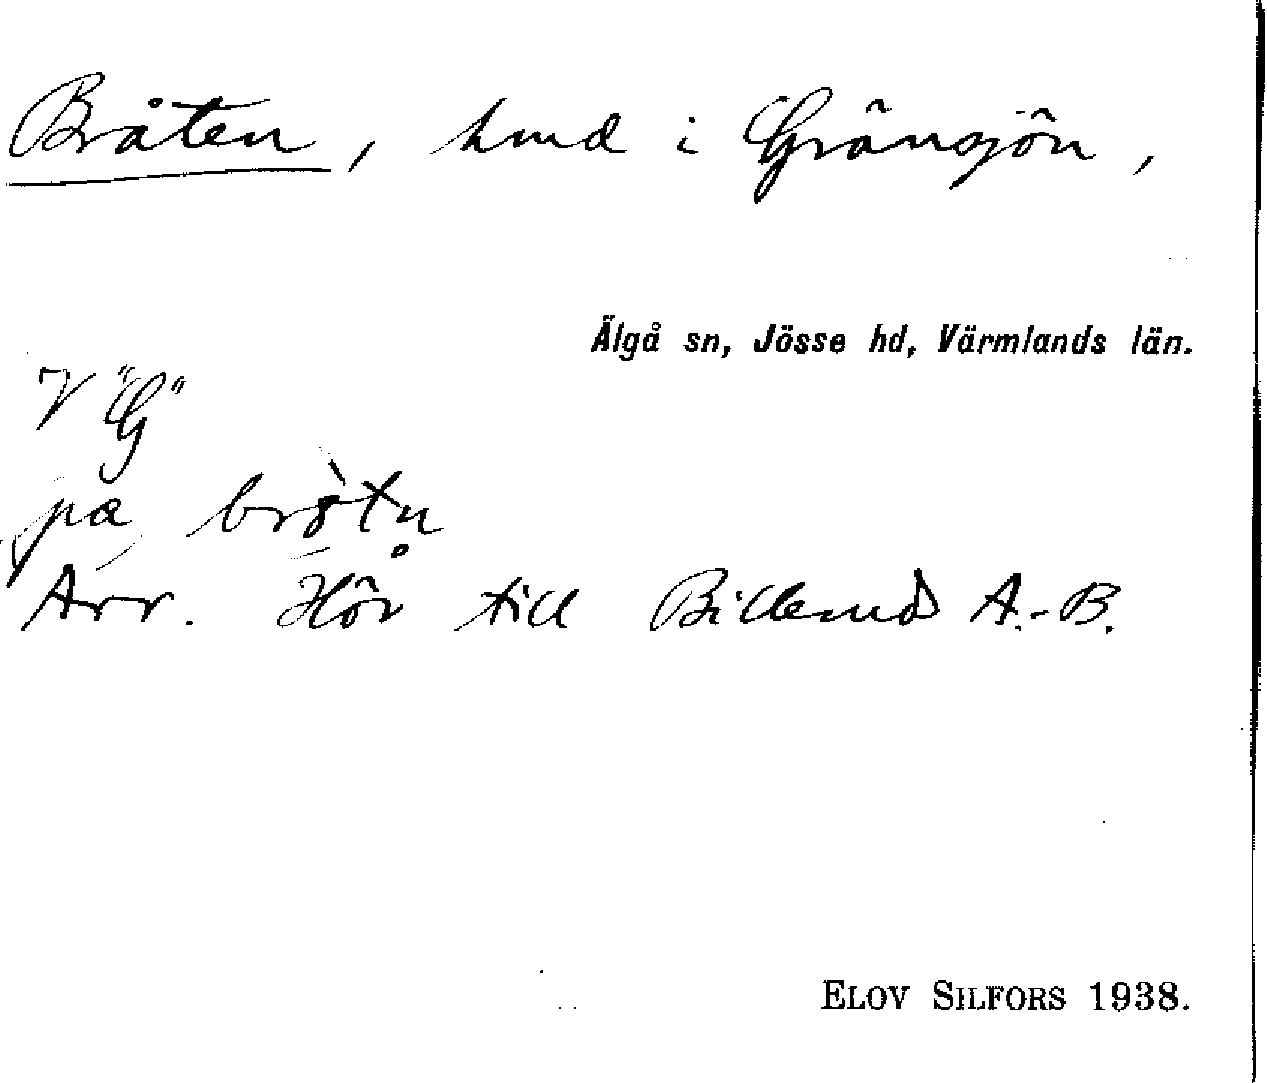 Bråten, hmd i Gränsjön,
Älgå sn, Jösse hd, Värmlands län.
V "G"
på brὸtn̥
Arr. Hör till Billerud A.-B.
ELOV SILFORS 1938.